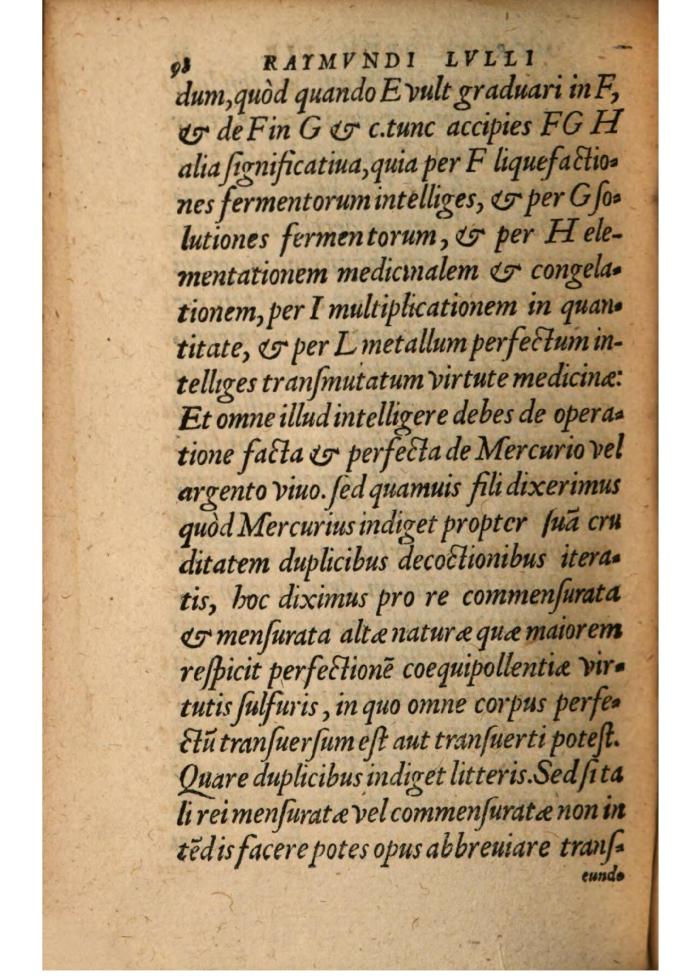 98 RAYMVNDI LVLLI
dum, quòd quando E vult graduari in F,
& de F in G & c. tunc accipies F G H
alia ſignificatiua, quia per F liquefactio-
nes fermentorum intelliges, & per G ſo-
lutiones fermentorum, & per H ele-
mentationem medicinalem & congela-
tionem, per I multiplicationem in quan-
titate, & per L metallum perfectum in-
telliges tranſmutatum virtute medicinæ:
Et omne illud intelligere debes de opera-
tione facta & perfecta de Mercurio vel
argento viuo. ſed quamuis fili dixerimus
quòd Mercurius indiget propter ſuā cru
ditatem duplicibus decoctionibus itera-
tis, hoc diximus pro re commenſurata
& menſurata altæ naturæ quæ maiorem
reſpicit perfectionē coequipollentiæ vir-
tutis ſulfuris, in quo omne corpus perfe-
ctū tranſuerſum eſt aut tranſuerti poteſt.
Quare duplicibus indiget litteris. Sed ſi ta
li rei menſuratæ vel commenſuratæ non in
tēdis facere potes opus abbreuiare tranſ-
eund-